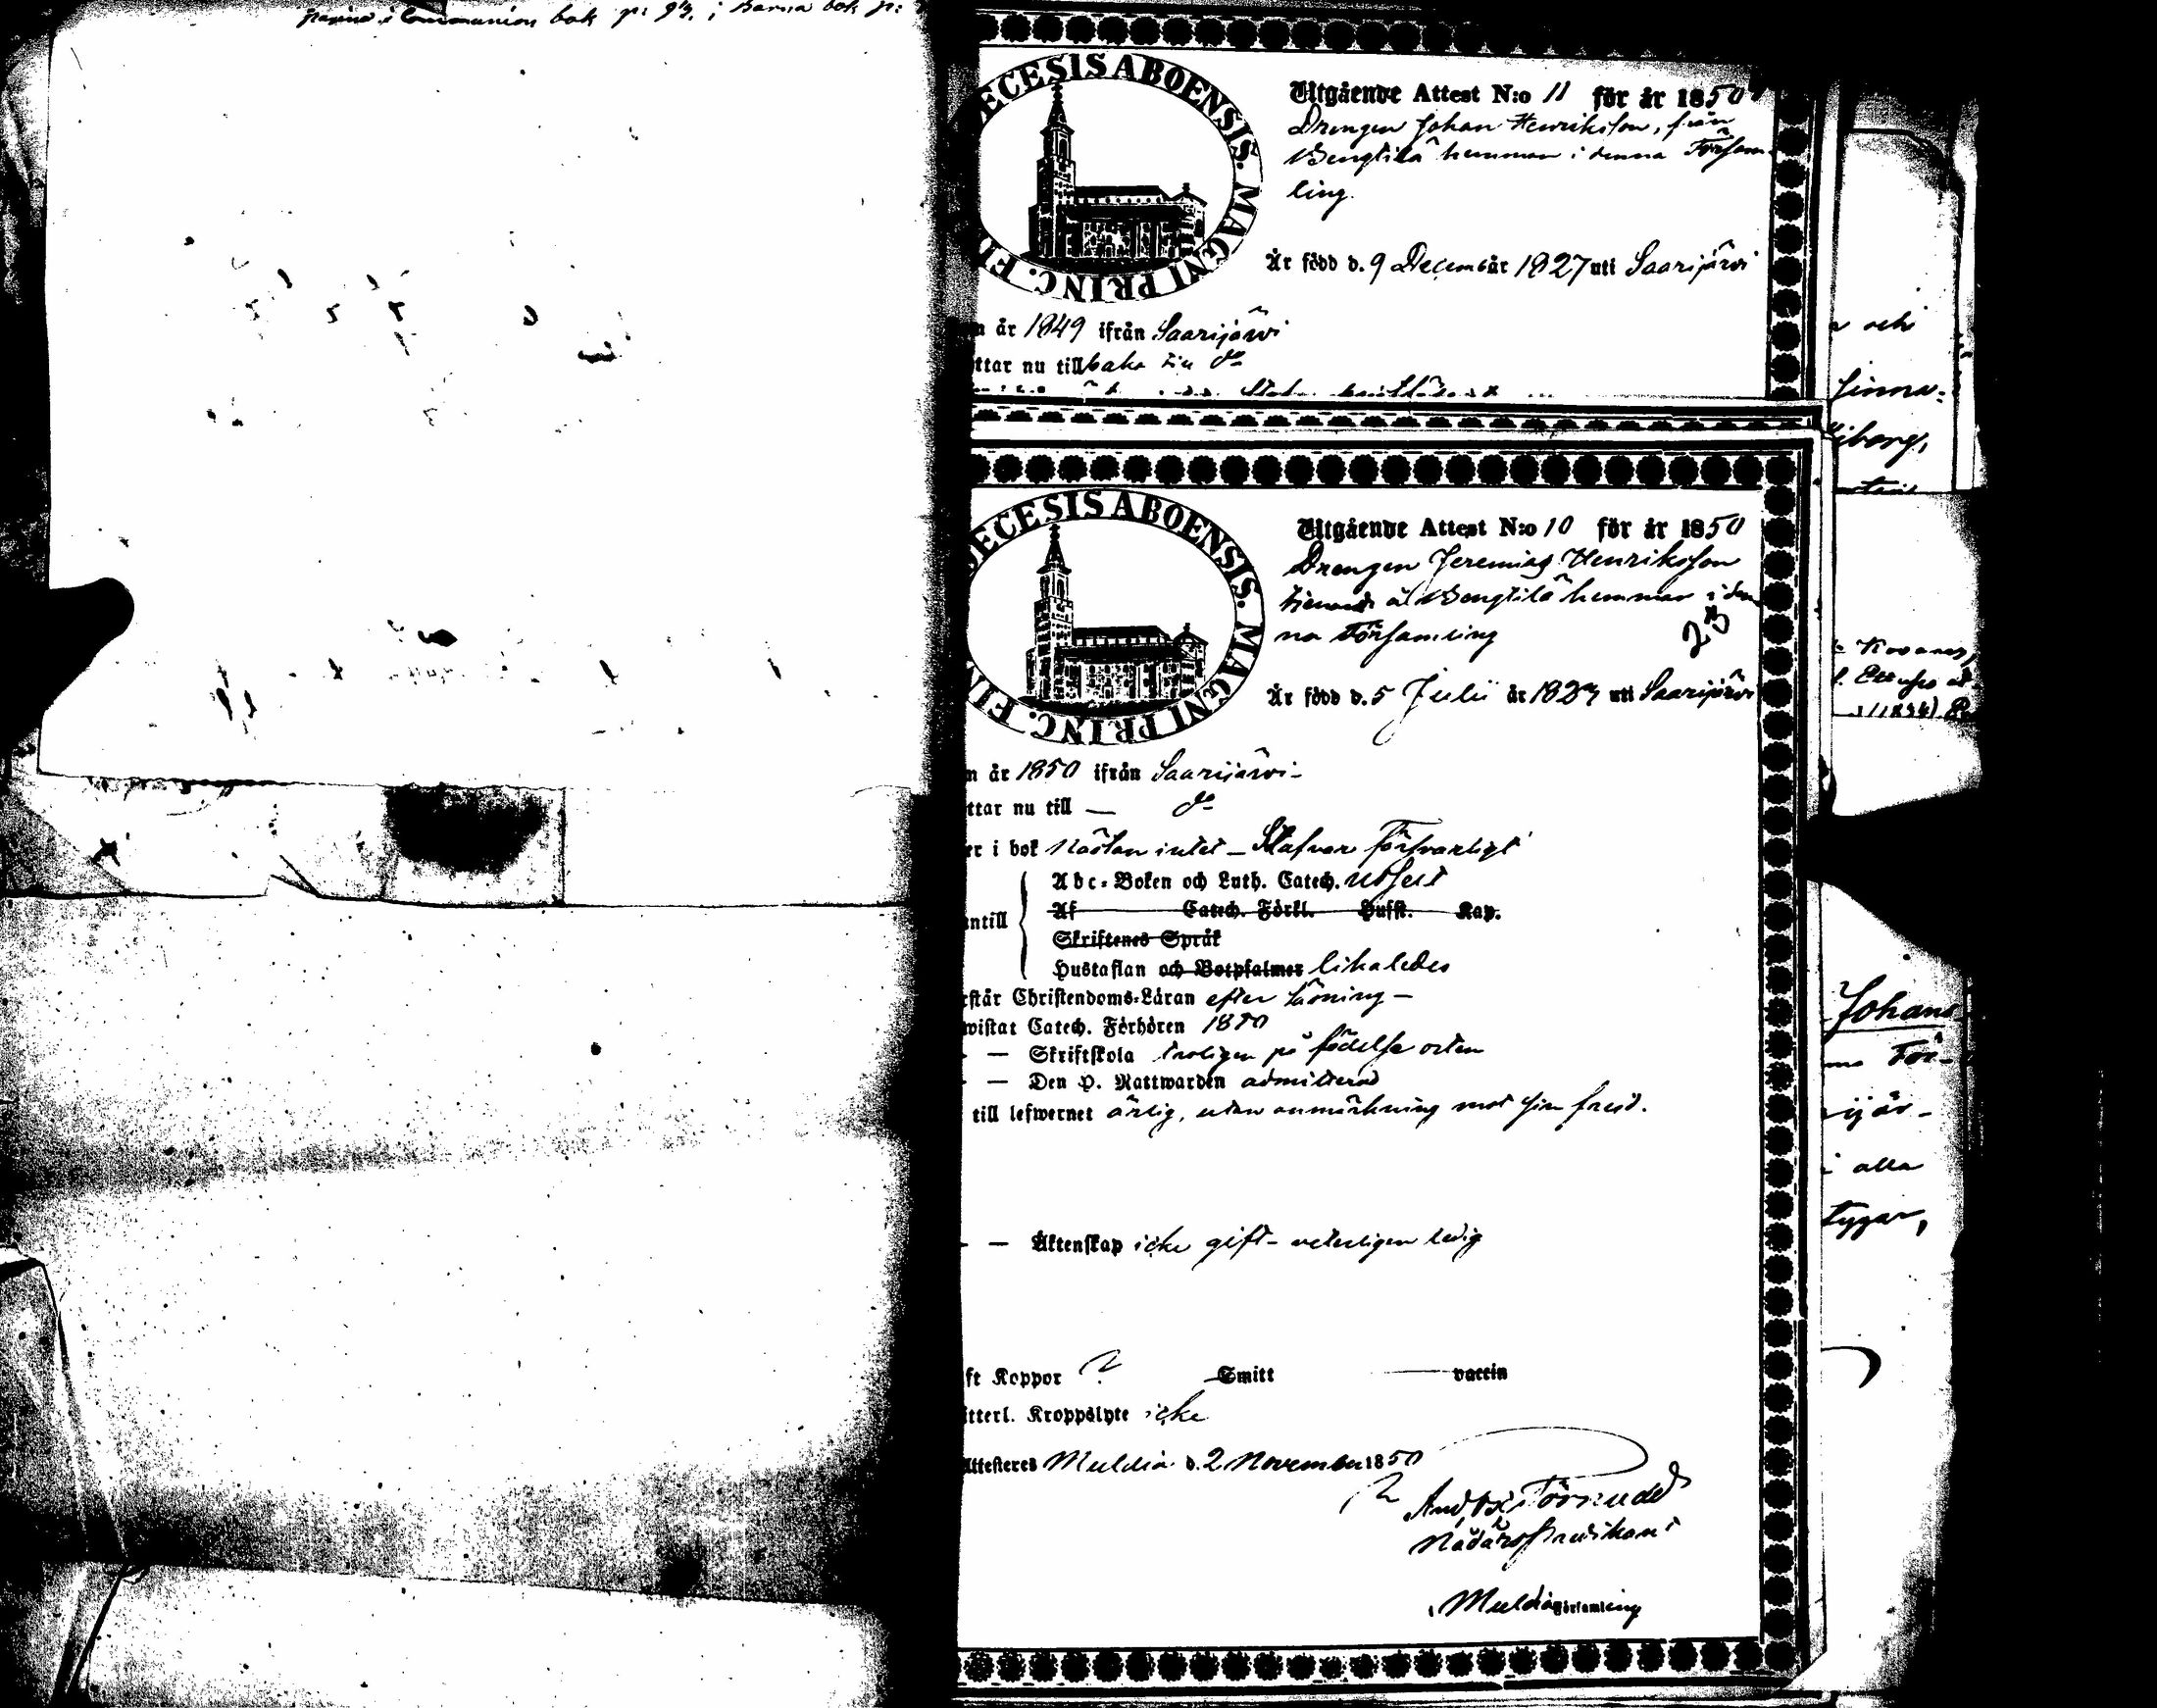 i Communion bok p: 93, i Barna bok p:
DECESIS ABOENSIS. MAGNI PRINC. FIN
Utgående Attest N:o 11 för år 1850
Drengen Johan Henriksson, från
Bengtilä hemman i denna Försam-
ling.
Är född d. 9 December 1827 uti Saarijärvi
n år 1849 ifrån Saarijärvi
ttar nu tillbaka till do
DECESIS ABOENSIS. MAGNI PRINC. FIN
Utgående Attest N:o 10 för år 1850
Drengen Jeremias Henriksson
å Bengtilä hemman i den
na Församling
23
Är född d. 5 Julii år 1823 uti Saarijärvi
n år 1850 ifrån Saarijärvi -
ttar nu till — do
er i bok nästan intet - Stafvar försvarligt
Abc-Boken och Luth. Catech. utsert
Af Catech. Förkl. Hufst. Kap.
ntill
Skriftenes Språk
Hustaflan och Botpsalmer likaledes
rstår Christendoms-Läran efter läsning -
wistat Catech. Förhören 1850
— Skriftskola troligen på födelse orten
— Den H. Nattwarden admitterad
till lefwernet ärlig, utan anmärkning mot sin frejd.
— Äktenskap icke gift - veterligen ledig
ft Koppor ? Smitt vaccin
tterl. Kroppslyte icke
Attesteres Muldia d. 2 November 1850
And. Törnudd
Nådårspredikant
i Muldia Församling
och
finna:
iborg,
Johans
För-
ijär-
i alla
tygar,